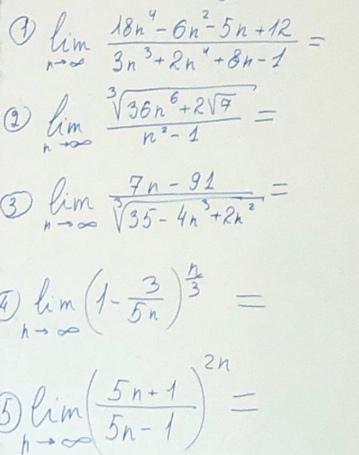 ① lim n→∞ (18n⁴ - 6n² - 5n + 12)/(3n³ + 2n⁴ + 8n - 1) =
② lim n→∞ ∛(36n⁶ + 2√7)/(n² - 1) =
③ lim n→∞ (7n - 91)/∛(35 - 4n³ + 2n²) =
④ lim n→∞ (1 - 3/(5n))^(n/3) =
⑤ lim n→∞ ((5n + 1)/(5n - 1))^(2n) =